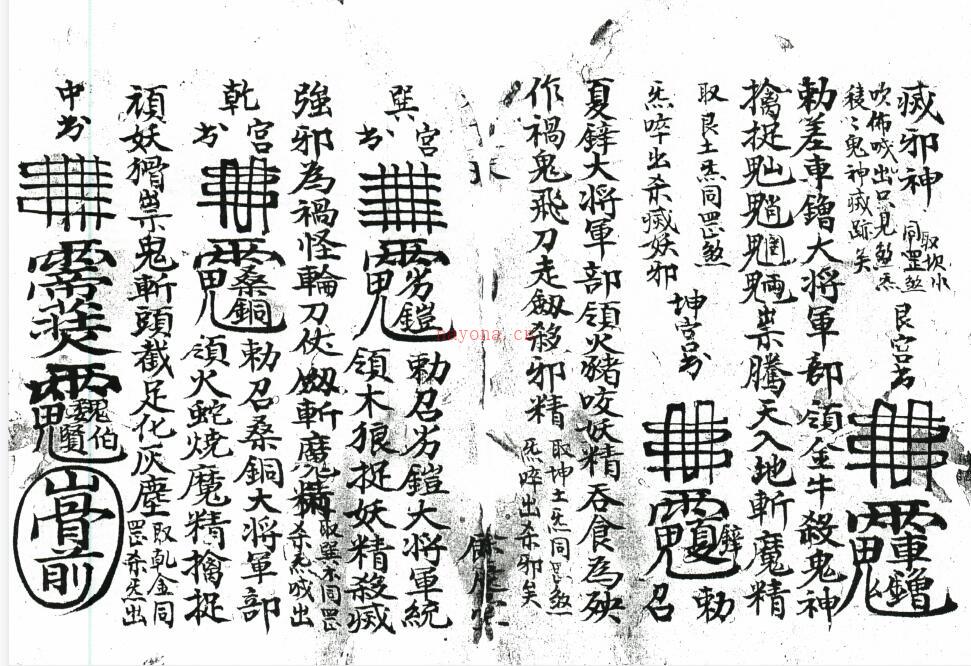 滅邪神 取坎水同罡煞
吹佈吸出只見煞炁
後々鬼神滅跡矣
艮宮書
勅差車鐺大將軍部領金牛殺鬼神
擒捉魈魍魎祟騰天入地斬魔精
取艮土炁同罡煞
炁啐出杀滅妖邪
坤宮書
勅召
夏鋅大将軍部領火豬咬妖精吞食為殃
作禍鬼飛刀走劔殺邪精
取坤土炁同罡煞
炁啐出杀邪矣
巽宮書
勅召劣鎧大将軍統
領木狼捉妖精殺滅
強邪為禍怪輪刀仗劔斬魔精
取巽木同罡
杀炁吸出
乾宮書
桑銅
勅召桑銅大将軍部
領火蛇燒魔精擒捉
頑妖猾祟鬼斬頭截足化灰塵
取乾金同
罡杀炁出
中書
魏伯
賢
nayona.cn